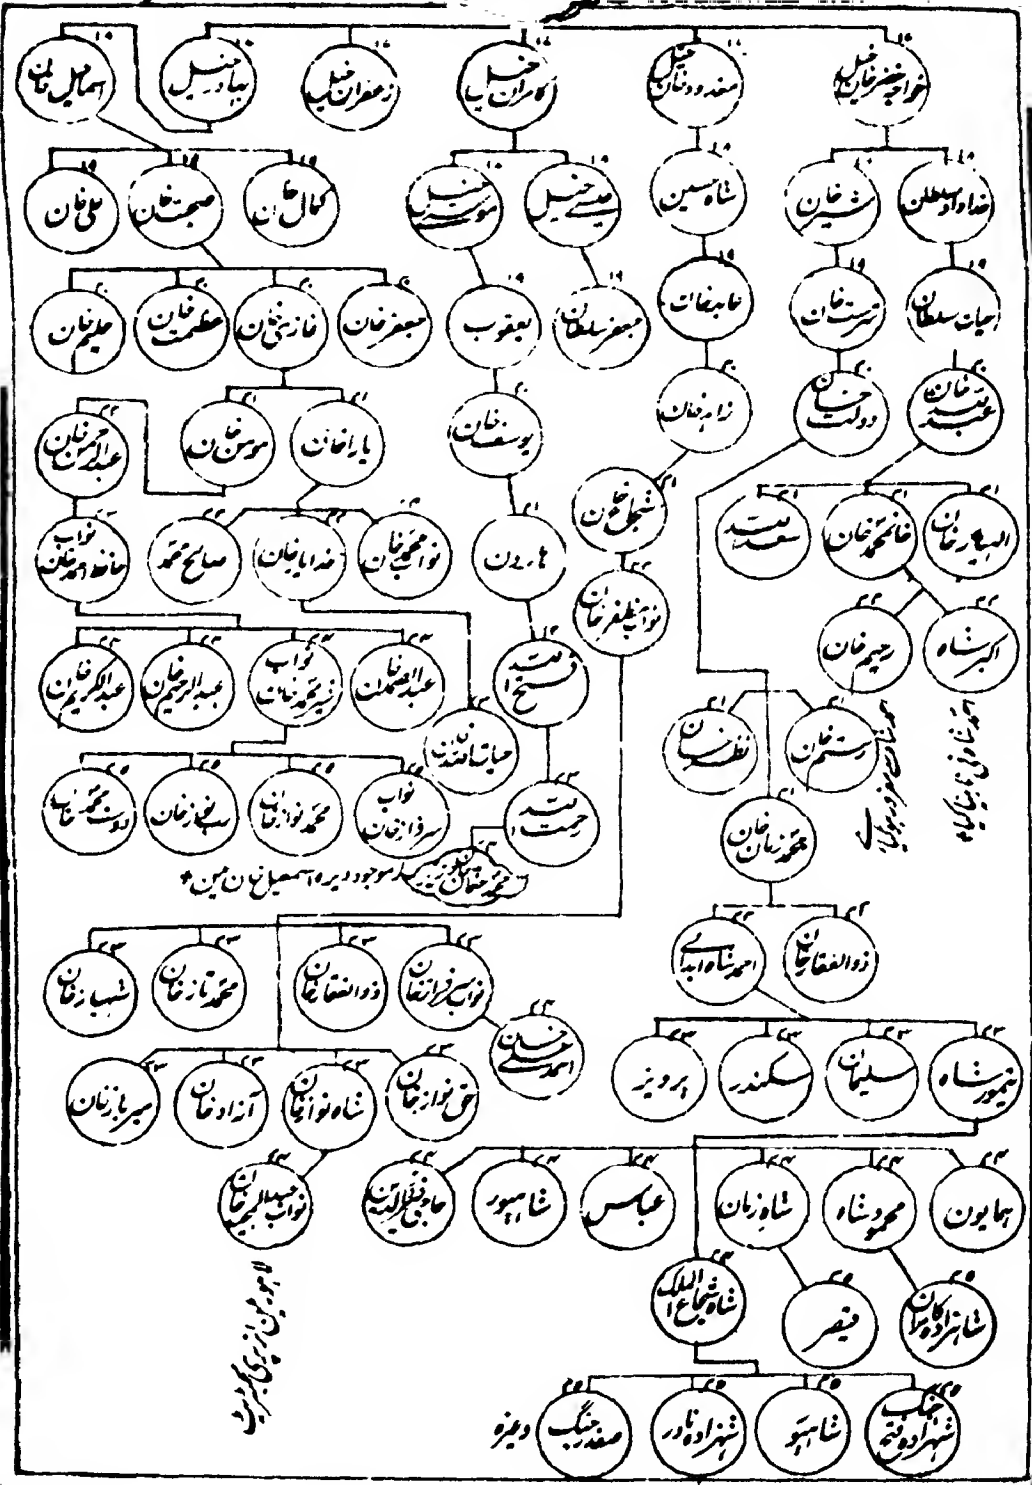 خواجہ خضر خان خیل
مغدود خان خیل
کامران خیل
زعفران خیل
بہادر خیل
اسماعیل خان
خداداد سلطان
شیر خان
شاہ حسین
عیسے خیل
موسے خیل
کمال خان
صحبت خان
علی خان
حیات سلطان
سرمست خان
عابد خان
جعفر سلطان
یعقوب
جعفر خان
غازی خان
عظمت خان
حلیم خان
عبد اللہ خان
دولت خان
زاہد خان
یوسف خان
یارا خان
موسن خان
عبد الرحمن خان
الہیار خان
خان محمد خان
سعد اللہ
شجاع خان
ہارون
نواب محمد خان
خدایار خان
صالح محمد
نواب حافظ احمد خان
اکبر شاہ
رحیم خان
نواب مظفر خان
فتح اللہ
عبد الصمد خان
نواب شیر محمد خان
عبد الرحیم خان
عبد الکریم خان
رستم خان
نظر خان
حیات اللہ خان
رحمت اللہ
نواب سرفراز خان
محمد نواز خان
رب نواز خان
محمد زمان خان
موجود دیرہ اسمعیل خان مین
ذوالفقار خان
احمد شاہ ابدالی
نواب سرفراز خان
ذوالفقار خان
محمد تاز خان
شہباز خان
احمد علی خان
تیمور شاہ
سلیمان
سکندر
پرویز
حق نواز خان
شاہ نواز خان
آزاد خان
میر باز خان
ہمایون
محمود شاہ
شاہ زمان
عباس
شاہپور
حاجی فیروز الدین
نواب عبد المجید خان
لاہور مین انریری مجسٹریٹ
شاہ شجاع الملک
شاہزادہ کامران
قیصر
شہزادہ فتح جنگ
شاہپور
شہزادہ نادر
صفدر جنگ
وغیرہ